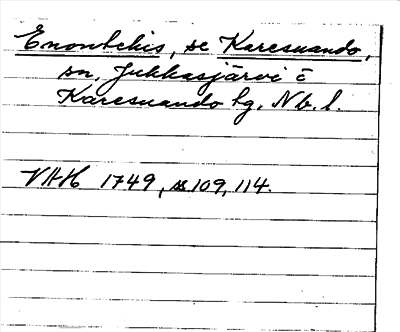 Enontekis, se Karesuando,
sn, Jukkasjärvi o
Karesuando hg. Nb. l.
VAH 1749, s. 109, 114.